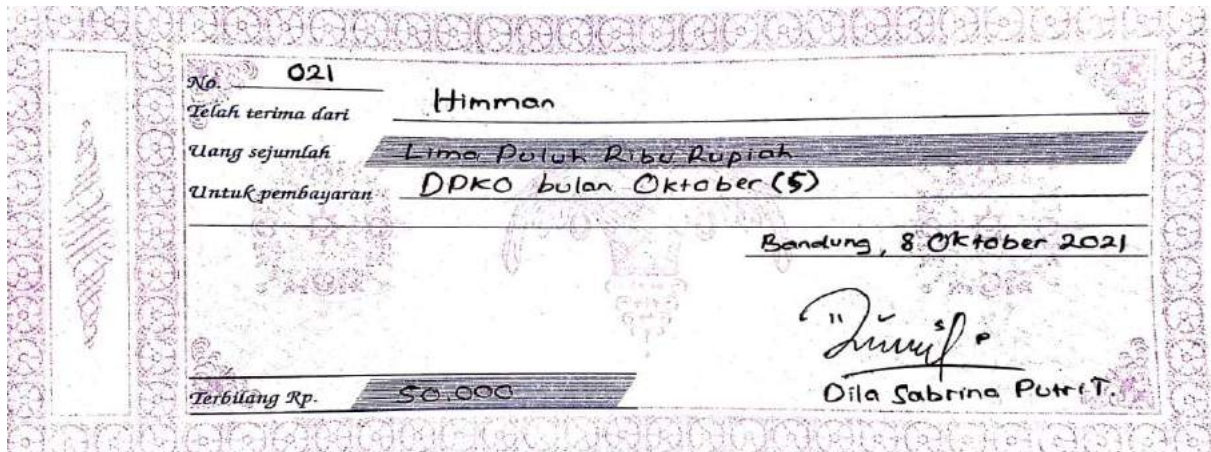 No. 021
Telah terima dari Himman
Uang sejumlah Lima Puluh Ribu Rupiah
Untuk pembayaran DPKO bulan Oktober (5)
Bandung, 8 Oktober 2021
Terbilang Rp. 50.000
Dila Sabrina Putri T.